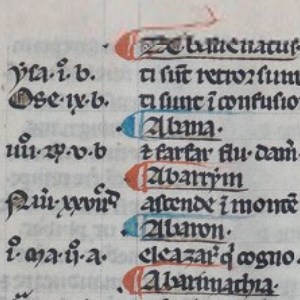 Abalienatus
ysa. i. b. ti sūt retrorsum
Ose. ix. b. ti sunt ī confusio
Abana.
iiii. . v. b ⁊ farfar flu. dam̄.
Abarrym
Nūi. xxvii ascende ī montē
Abaron.
i. ma. ii. a. eleazar q̇ cogno.
Abarimathia